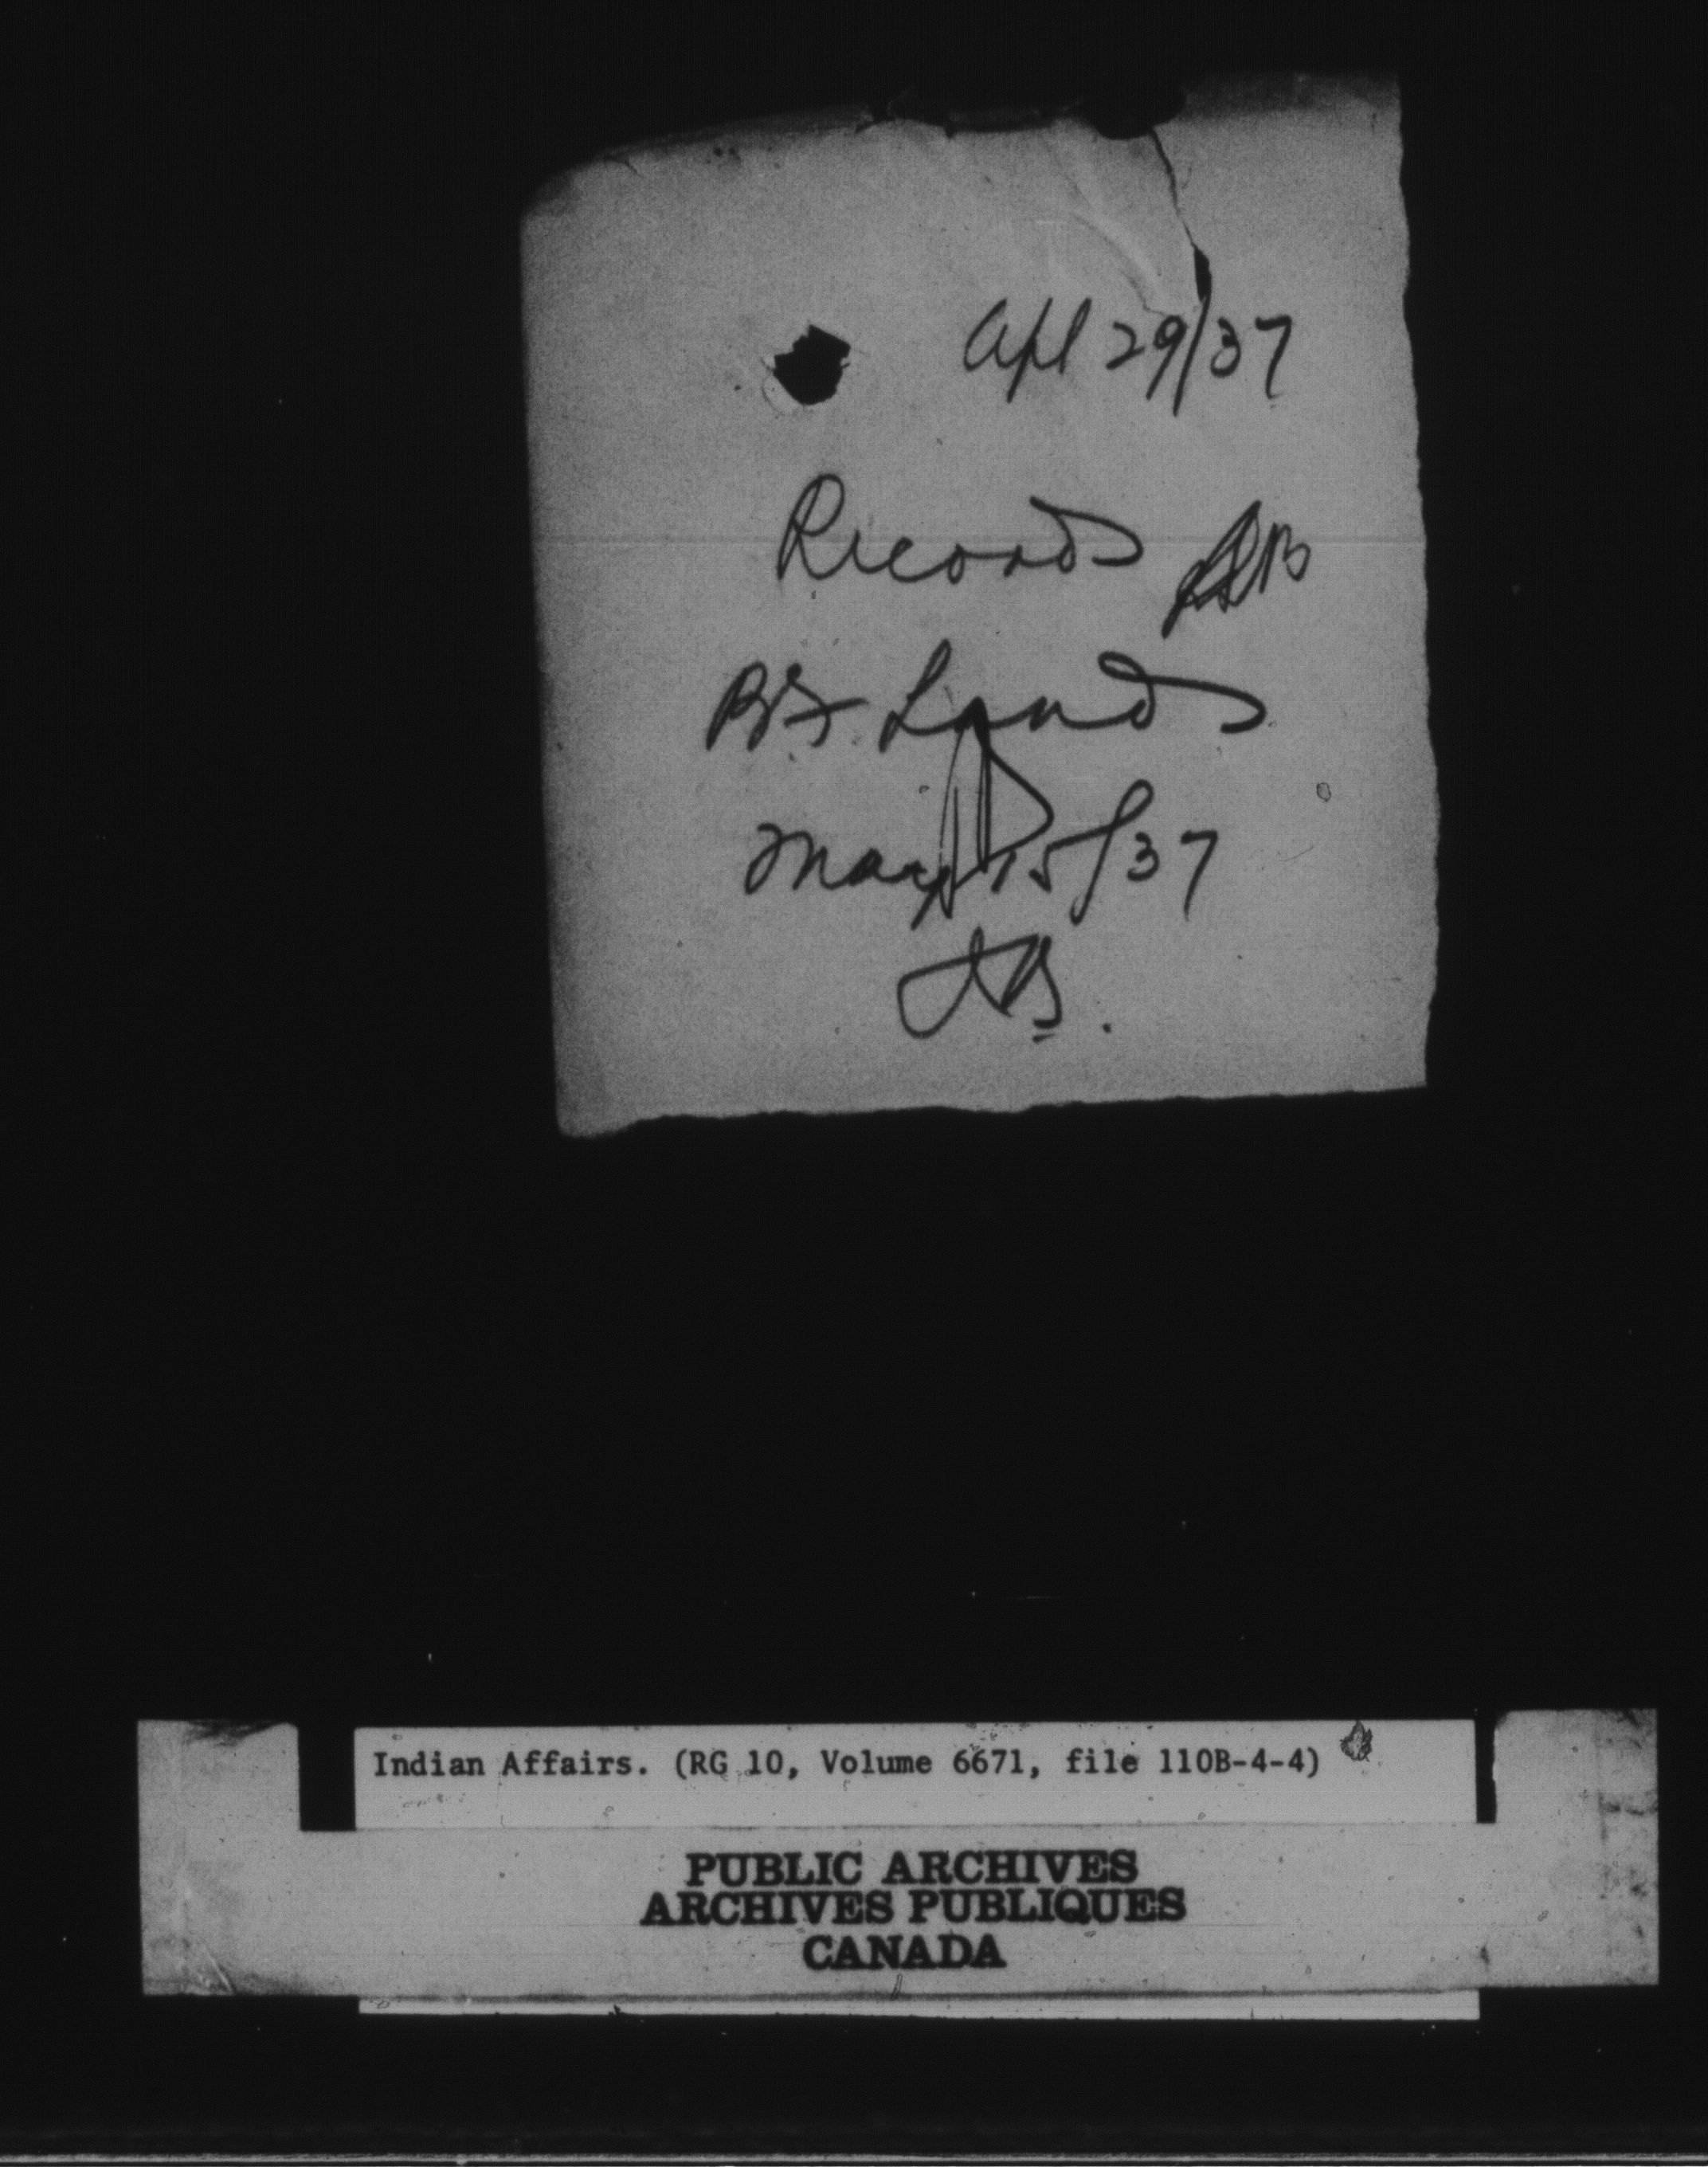 Apl 29/37
Records
B.F. Lands
May 15/37
Indian Affairs. (RG 10, Volume 6671, file 110B-4-4)
PUBLIC ARCHIVES
ARCHIVES PUBLIQUES
CANADA